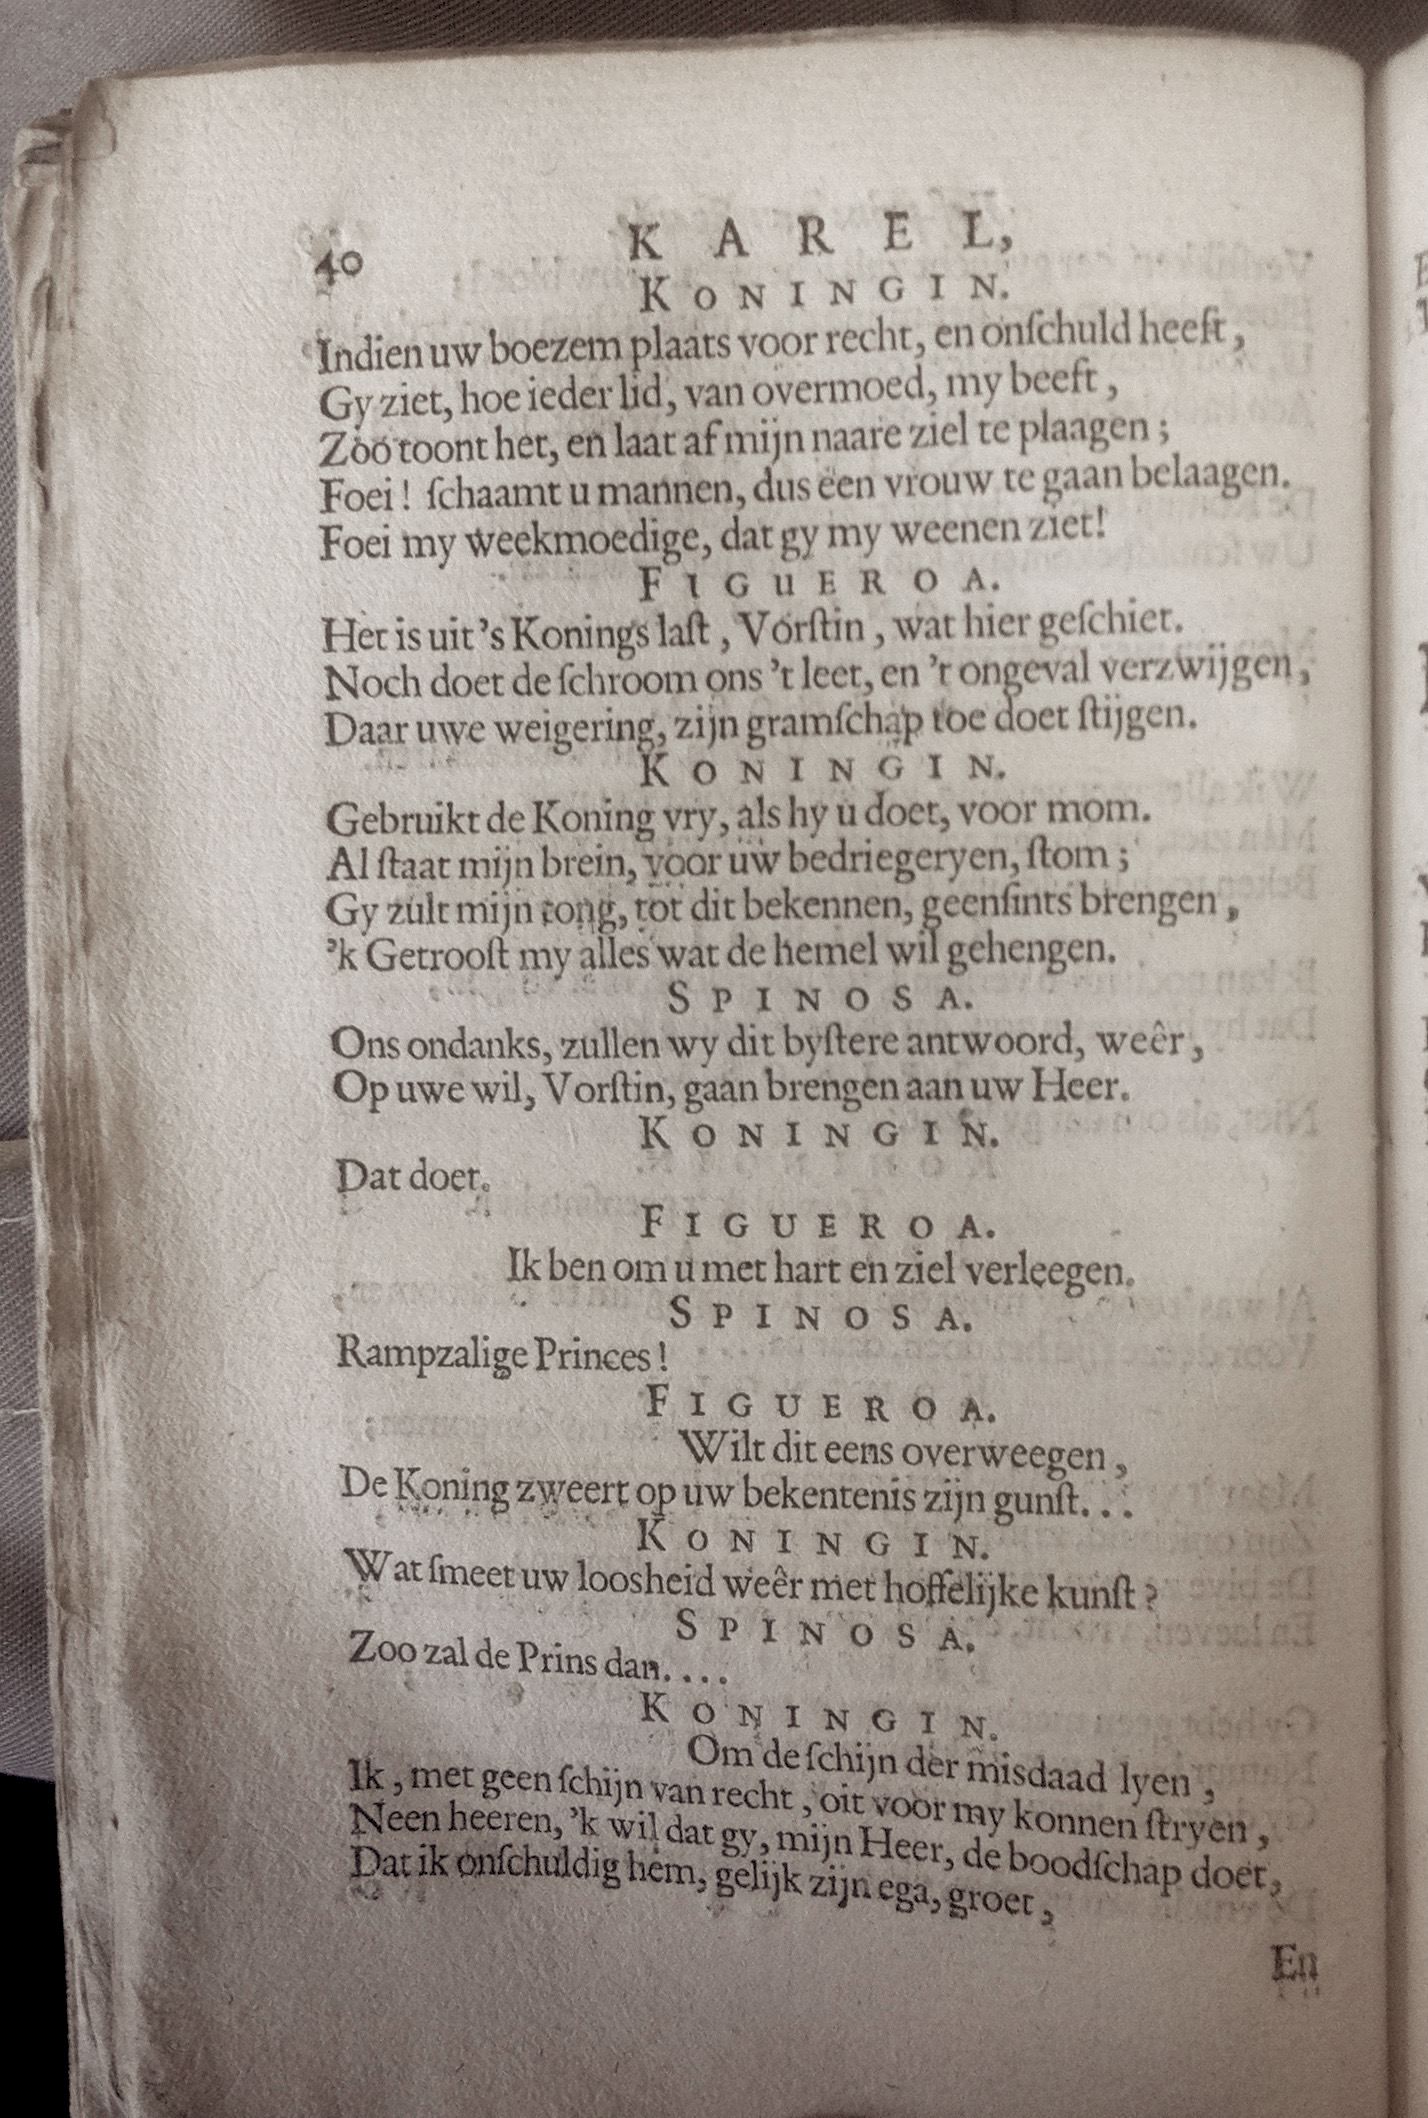 40
KAREL,
KONINGIN.
Indien uw boezem plaats voor recht, en onſchuld heeft,
Gy ziet, hoe ieder lid, van overmoed, my beeft,
Zoo toont het, en laat af mijn naare ziel te plaagen;
Foei! ſchaamt u mannen, dus een vrouw te gaan belaagen.
Foei my weekmoedige, dat gy my weenen ziet!
FIGUEROA.
Het is uit 's Konings laſt, Vorſtin, wat hier geſchiet.
Noch doet de ſchroom ons 't leet, en 't ongeval verzwijgen,
Daar uwe weigering, zijn gramſchap toe doet ſtijgen.
KONINGIN.
Gebruikt de Koning vry, als hy u doet, voor mom.
Al ſtaat mijn brein, voor uw bedriegeryen, ſtom;
Gy zult mijn tong, tot dit bekennen, geenſints brengen,
'k Getrooſt my alles wat de hemel wil gehengen.
SPINOSA.
Ons ondanks, zullen wy dit byſtere antwoord, weêr,
Op uwe wil, Vorſtin, gaan brengen aan uw Heer.
KONINGIN.
Dat doet.
FIGUEROA.
Ik ben om u met hart en ziel verleegen.
SPINOSA.
Rampzalige Princes!
FIGUEROA.
Wilt dit eens overweegen,
De Koning zweert op uw bekentenis zijn gunſt...
KONINGIN.
Wat ſmeet uw loosheid weêr met hoffelijke kunſt?
SPINOSA.
Zoo zal de Prins dan....
KONINGIN.
Om de ſchijn der misdaad lyen,
Ik, met geen ſchijn van recht, oit voor my konnen ſtryen,
Neen heeren, 'k wil dat gy, mijn Heer, de boodſchap doet,
Dat ik onſchuldig hem, gelijk zijn ega, groet,
En